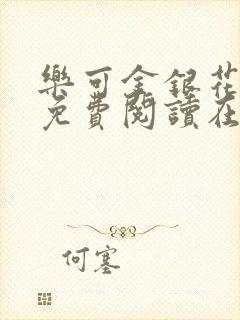 樂可金銀花
免費閱讀在
何塞